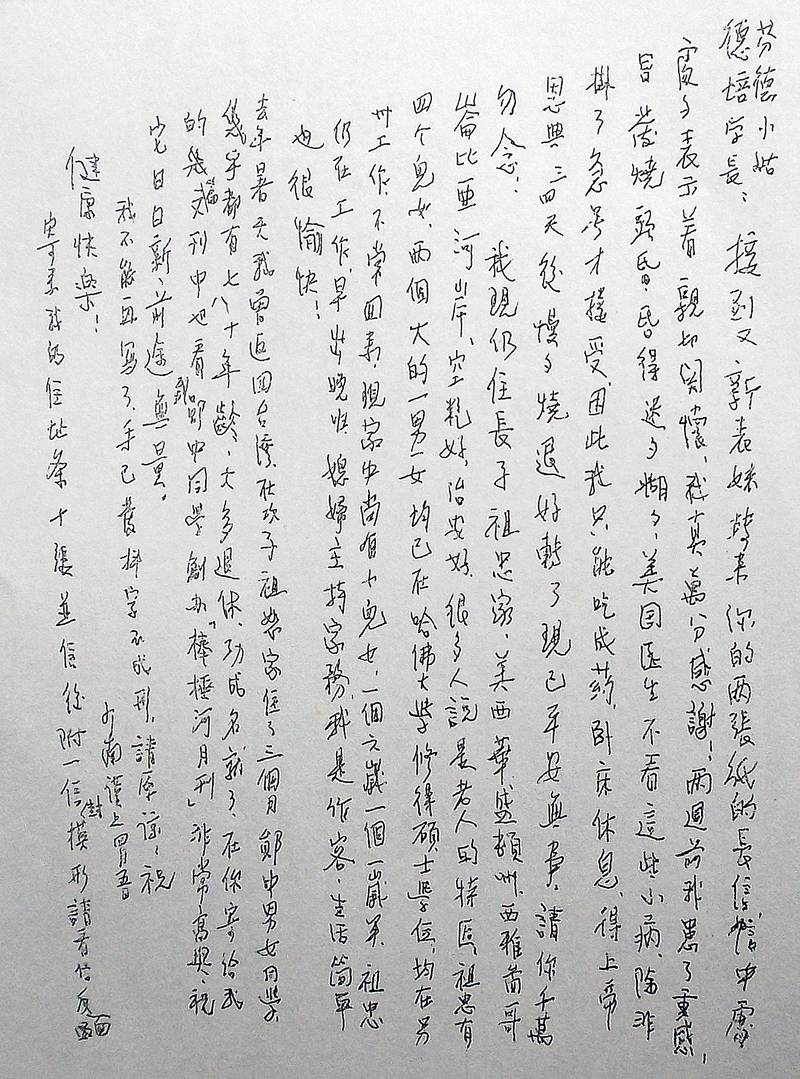 芬德小姑
德培学長： 接到又新表妹转来你的两張紙的長信,信中處
處々表示着親切関懷,我真是萬分感謝！两週前我患了重感,
冒,發燒頭昏,昏得迷々糊々,美国医生不看這些小病,除非
掛了急号才接受,因此我只能吃成药,卧床休息,得上帝
恩典三四天後慢々燒退好轉了現已平安無事,請你千萬
勿念！ 我現仍住長子祖忠家,美西華盛頓州,西雅图哥
崙比亚河岸,空氣好,治安好,很多人說是老人的特區,祖忠有
四个兒女,两個大的一男一女均已在哈佛大學修得碩士學位,均在另
卅工作,不常回家,現家中尚有小兒女,一個六歲一個一歲半,祖忠
仍在工作,早出晚归,媳婦主持家務,我是作客,生活简單
也很愉快！
去年暑天我曾返回台湾,在次子祖懋家住了三個月,鄖中男女同學,
幾乎都有七八十年齡,大多退休,功成名就了,在你寄給我
的幾篇文刊中也看到我鄖中同學創办「棒搥河月刊」非常高興,祝
它日日新,前途無量。
我不能再寫了,手已發抖字不成形,請原諒,祝
健康快樂！
少南謹上四月五日
寄上我的住址条十張並信後附一信封模形請看信反面